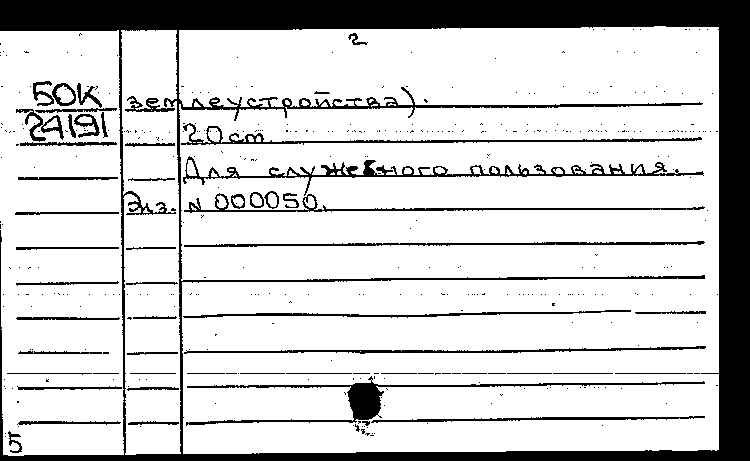 2
50К землеустройства).
24191 20 cm.
Для служебного пользования.
Экз. N 000050.
5